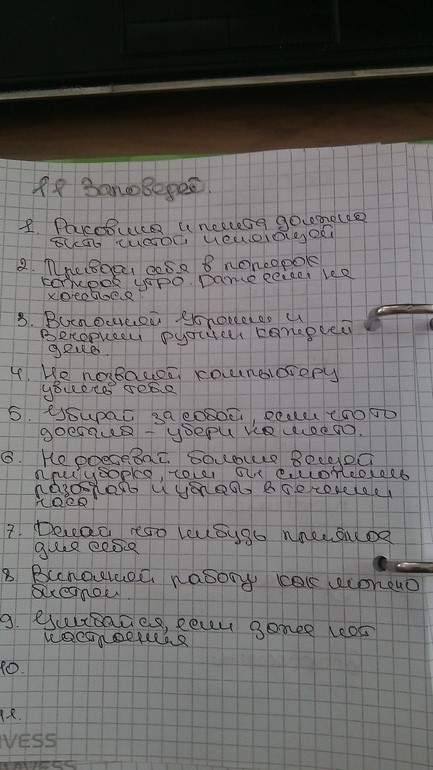 11 Заповедей.
1. Раковина и плита должна
быть чистой и сияющей
2. Приводи себя в порядок
каждое утро. Даже если не
хочется
3. Выполняй утренние и
Вечерние рутины каждый
день.
4. Не позволяй компьютеру
увлечь тебя
5. Убирай за собой, если что то
достала – убери на место.
6. Не доставай больше вещей
при уборке, чем ты сможешь
разобрать и убрать в течении
часа
7. Делай что нибудь приятное
для себя
8. Выполняй работу как можно
быстрей.
9. Улыбайся, если даже нет
настроения
10.
11.
IVESS
NAVESS